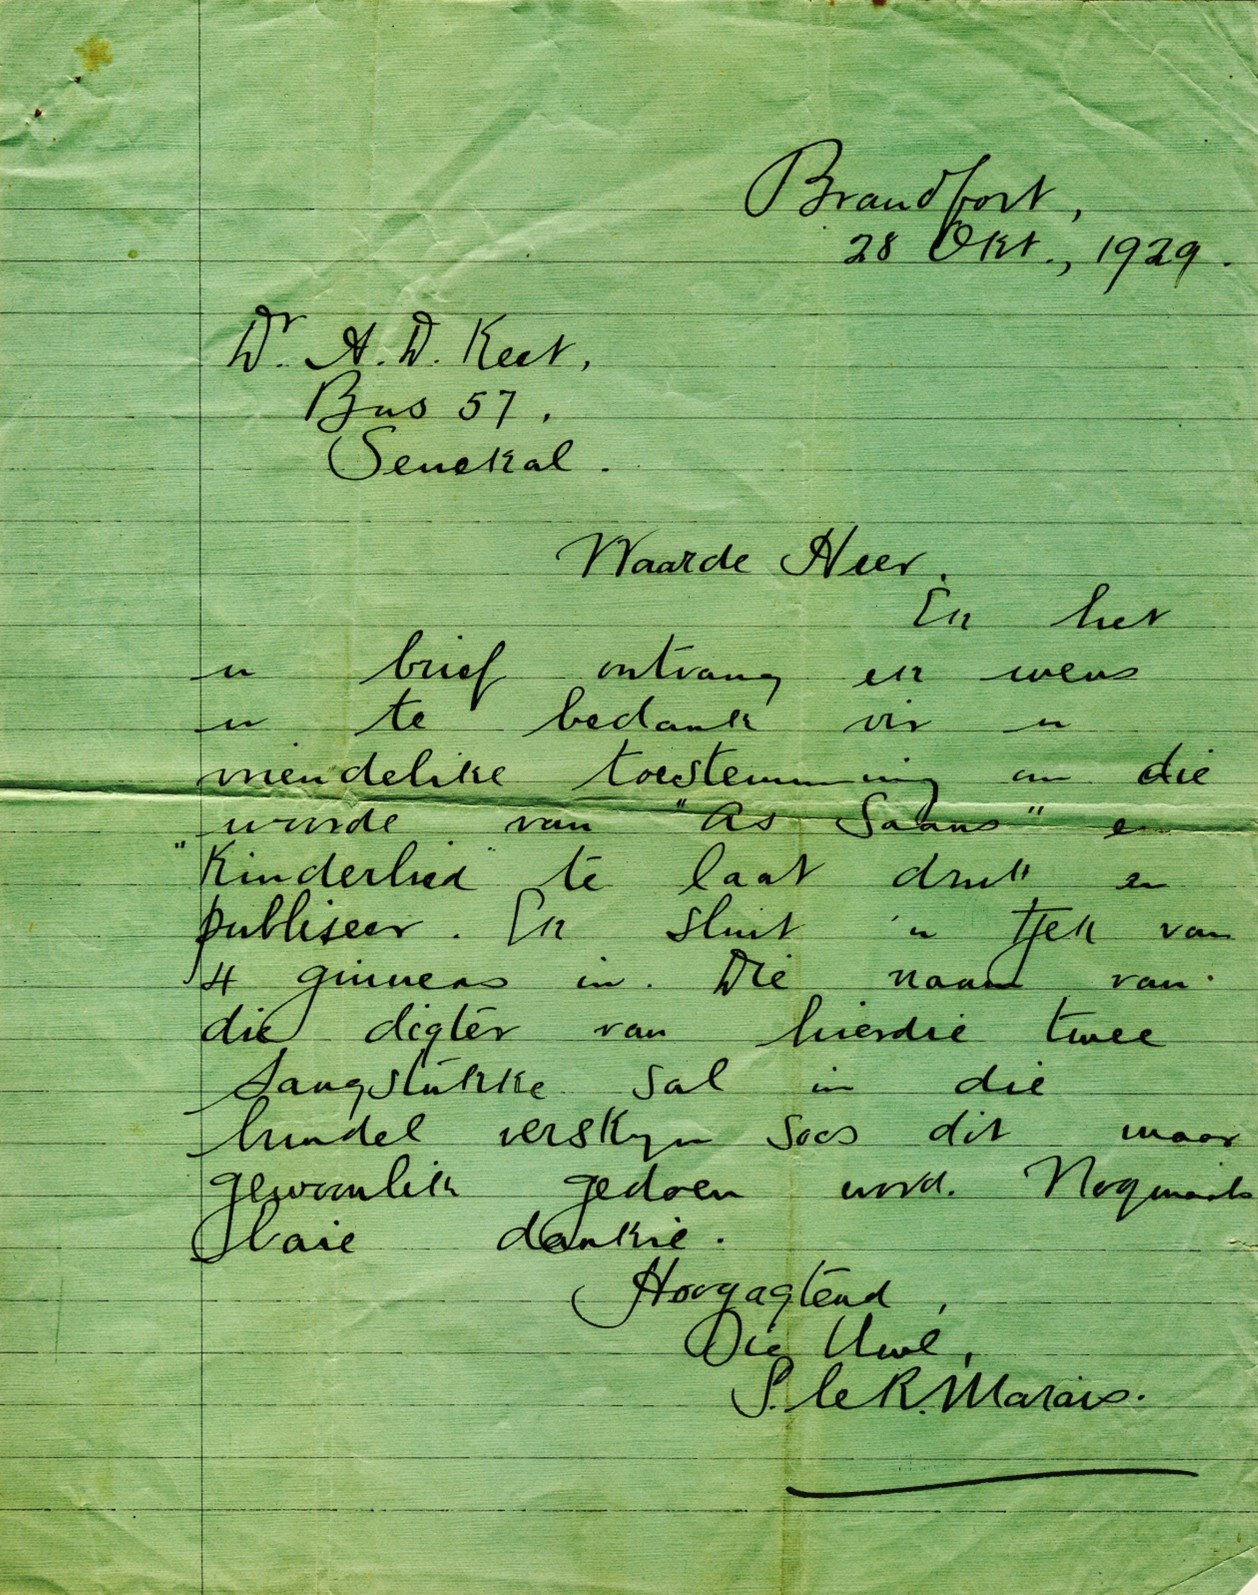 Brandfort,
28 Okt., 1929.
Dr. A. D. Keet,
Bus 57,
Senekal.
Waarde Heer,
Ek het
u brief ontvang en wens
u te bedank vir u
vriendelike toestemming om die
woorde van "As Saans" en
"Kinderlied" te laat druk en
publiseer. Ek sluit 'n tjek van
4 ghinneas in. Die naam van
die digter van hierdie twee
sangstukke sal in die
bundel verskyn soos dit maar
gewoonlik gedoen word. Nogmaals
baie dankie.
Hoogagtend,
Die Uwe,
S. le R. Marais.